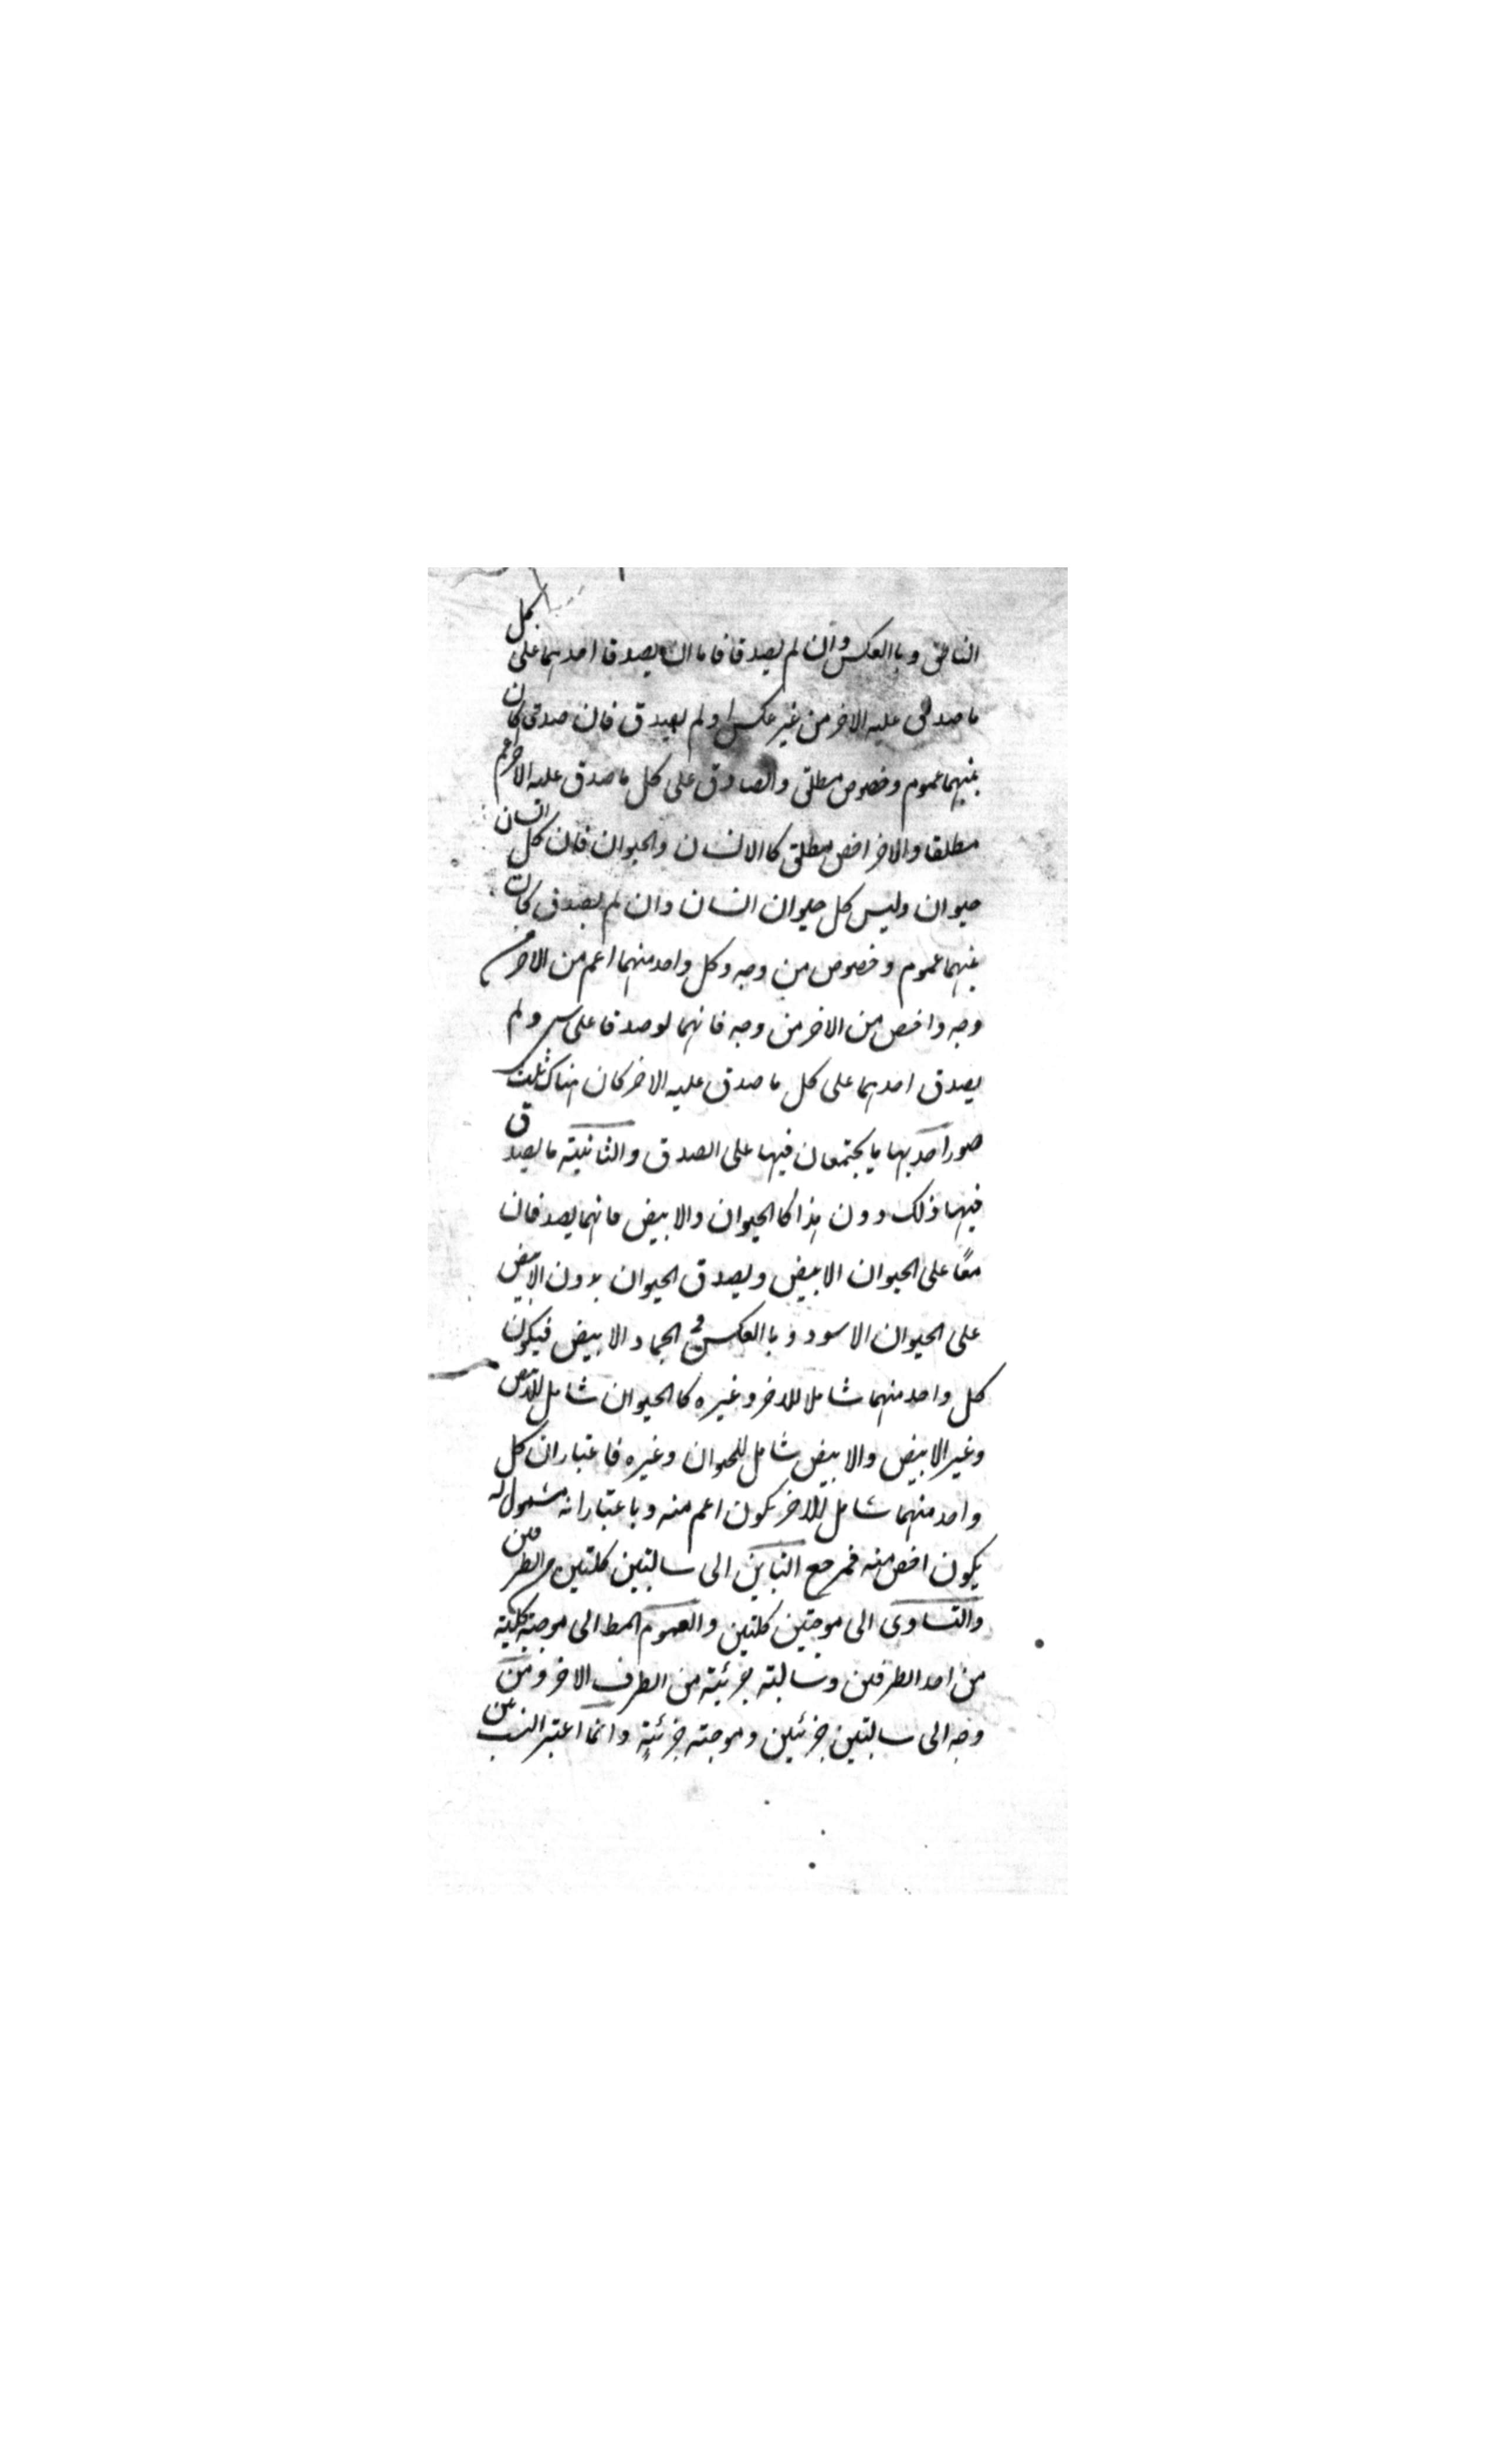 الناطق وباالعكس وان لم يصدقا فاما ان يصدق احدهما على كل
ما صدق عليه الاخر من غير عكس او لم يصدق فان صدق كان
بينهما عموم وخصوص مطلق والصادق على كل ما صدق عليه الاخر اعم
مطلقا والاخر اخص مطلق كاالانسان والحيوان فان كل انسان
حيوان وليس كل حيوان انسان وان لم يصدق كان
بينهما عموم وخصوص من وجه وكل واحد منهما اعم من الاخر من
وجه واخص من الاخر من وجه فانهما لو صدقا على شىء ولم
يصدق احدهما على كل ما صدق عليه الاخر كان هناك ثلث
صور احديها ما يجتمعان فيها على الصدق والثانية ما يصدق
فيها ذلك دون هذا كاالحيوان والابيض فانهما يصدقان
معًا على الحيوان الابيض ويصدق الحيوان بدون الابيض
على الحيوان الاسود وباالعكس فى الجماد الابيض فيكون
كل واحد منهما شاملا للاخر وغيره كاالحيوان شامل للابيض
وغير الابيض والابيض شامل للحيوان وغيره فاعتبار ان كل
واحد منهما شامل للاخر يكون اعم منه وباعتبار انه مشمول له
يكون اخص منه فمرجع التباين الى سالبتين كليتين من الطرفين
والتساوى الى موجبتين كليتين والعموم المط الى موجبة كلية
من احد الطرفين وسالبة جزئية من الطرف الاخر ومن
وجه الى سالبتين جزئيين وموجبة جزئية وانما اعتبر النسب بين